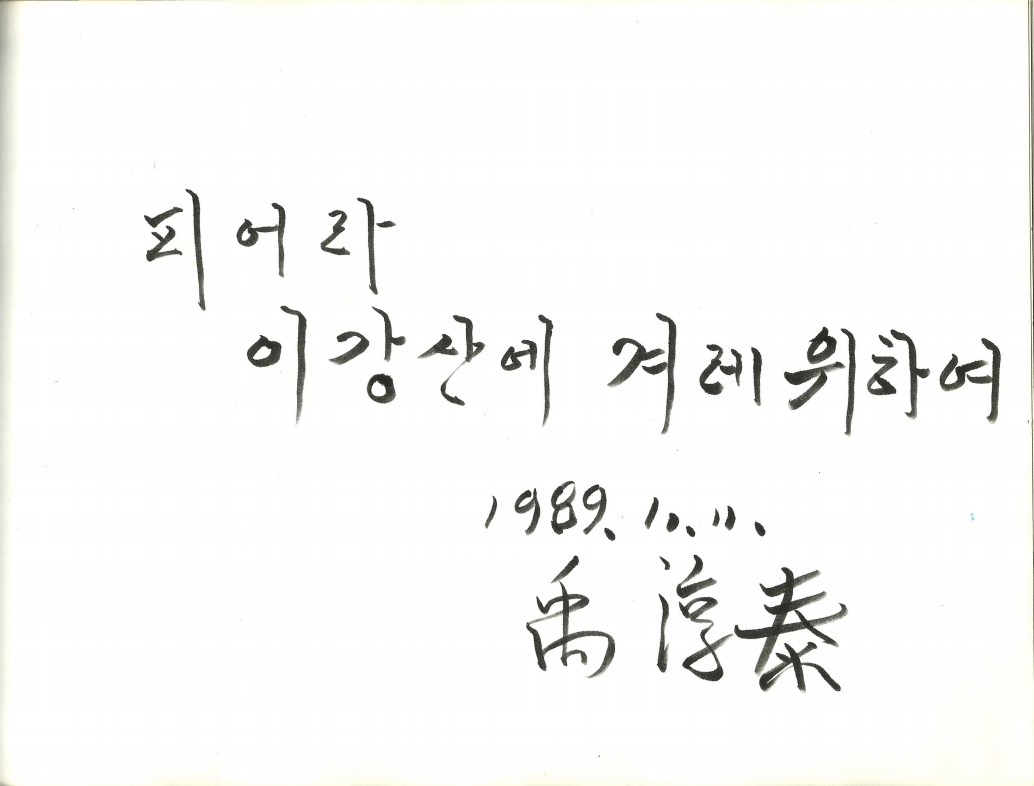 피어라
이강산에 겨레위하여
1989. 10. 11.
禹淳泰